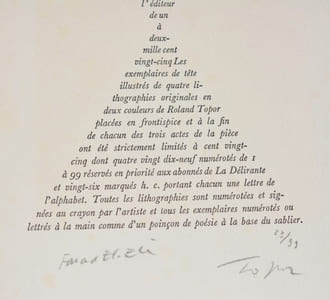 l'éditeur
de un
à
deux-
mille cent
vingt-cinq Les
exemplaires de tête
illustrés de quatre li-
thographies originales en
deux couleurs de Roland Topor
placées en frontispice et à la fin
de chacun des trois actes de la pièce
ont été strictement limités à cent vingt-
cinq dont quatre vingt dix-neuf numérotés de 1
à 99 réservés en priorité aux abonnés de La Délirante
et vingt-six marqués h. c. portant chacun une lettre de
l'alphabet. Toutes les lithographies sont numérotées et sig-
nées au crayon par l'artiste et tous les exemplaires numérotés ou
lettrés à la main comme d'un poinçon de poésie à la base du sablier.
Topor